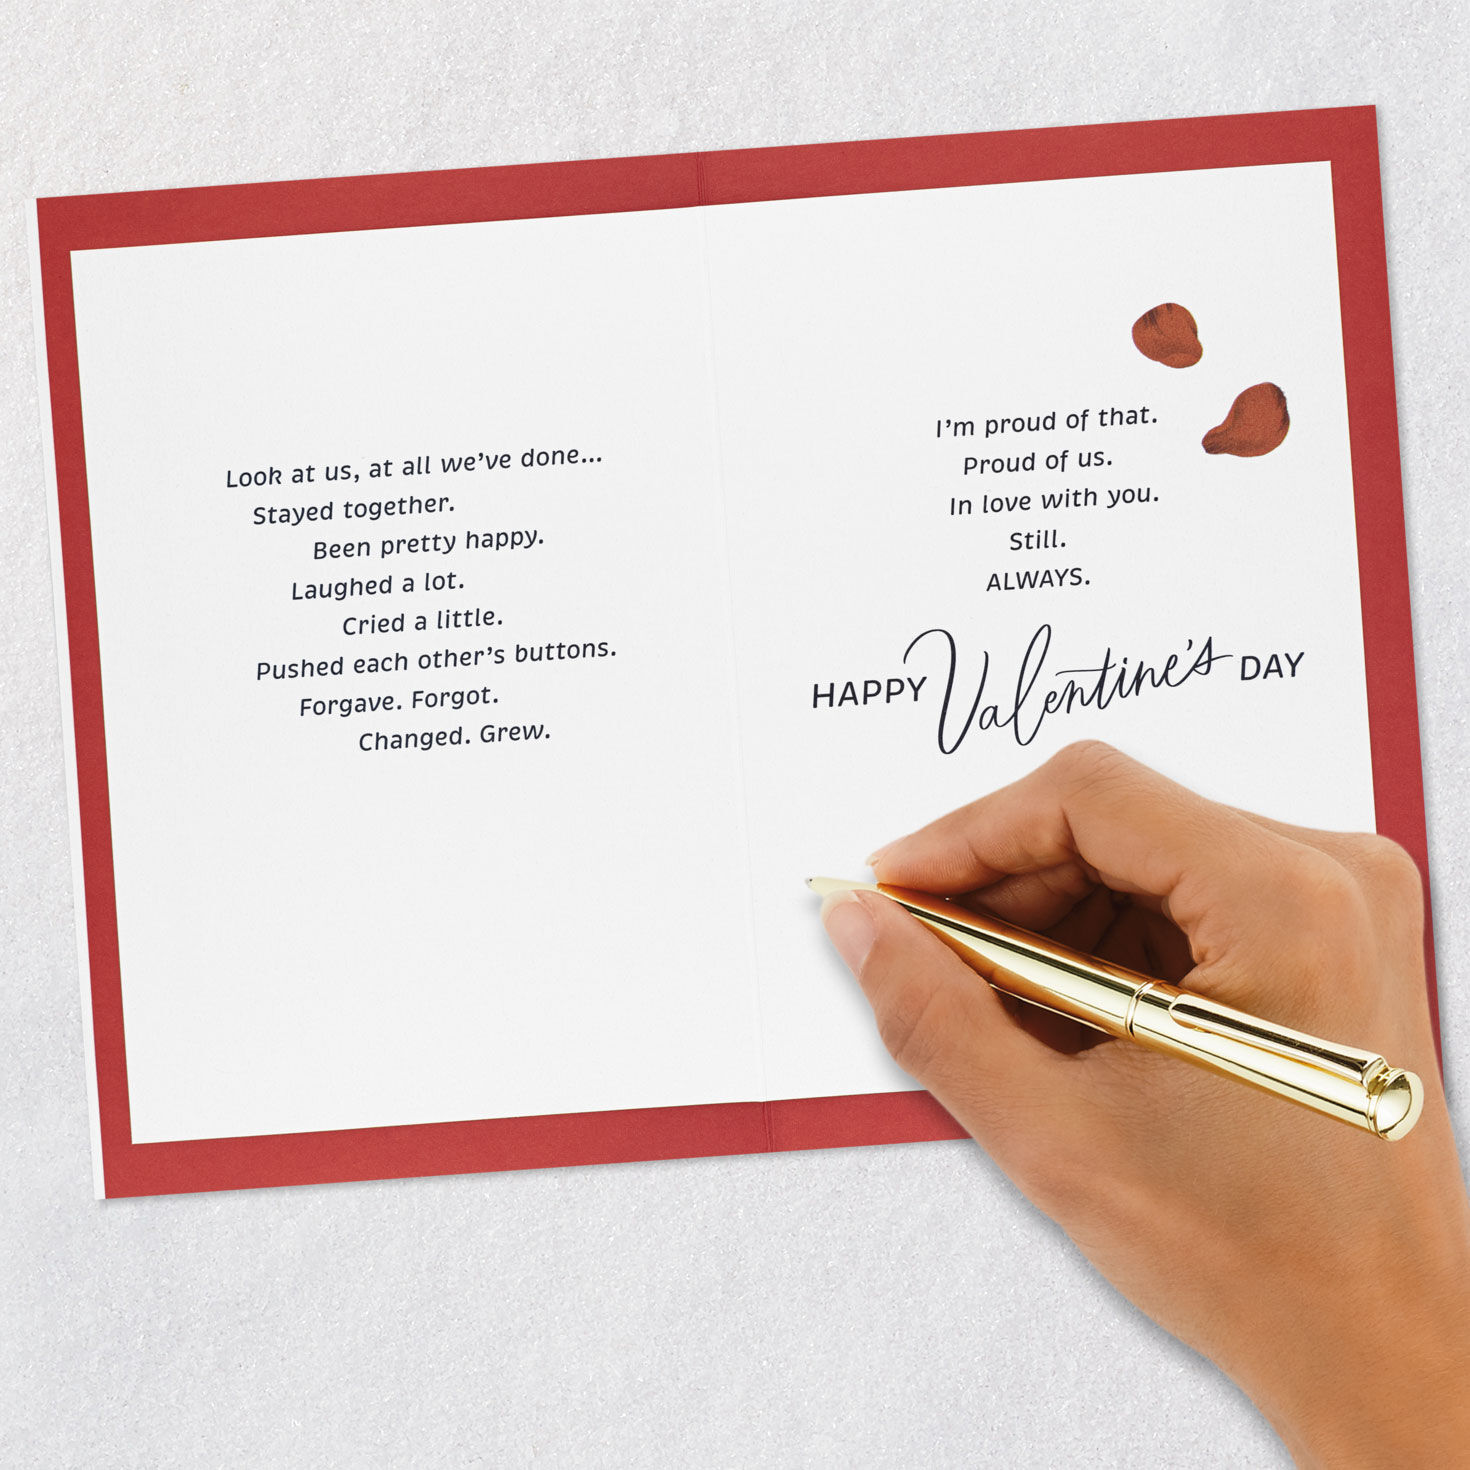 Look at us, at all we've done...
Stayed together.
Been pretty happy.
Laughed a lot.
Cried a little.
Pushed each other's buttons.
Forgave. Forgot.
Changed. Grew.
I'm proud of that.
Proud of us.
In love with you.
Still.
ALWAYS.
HAPPY Valentine's DAY